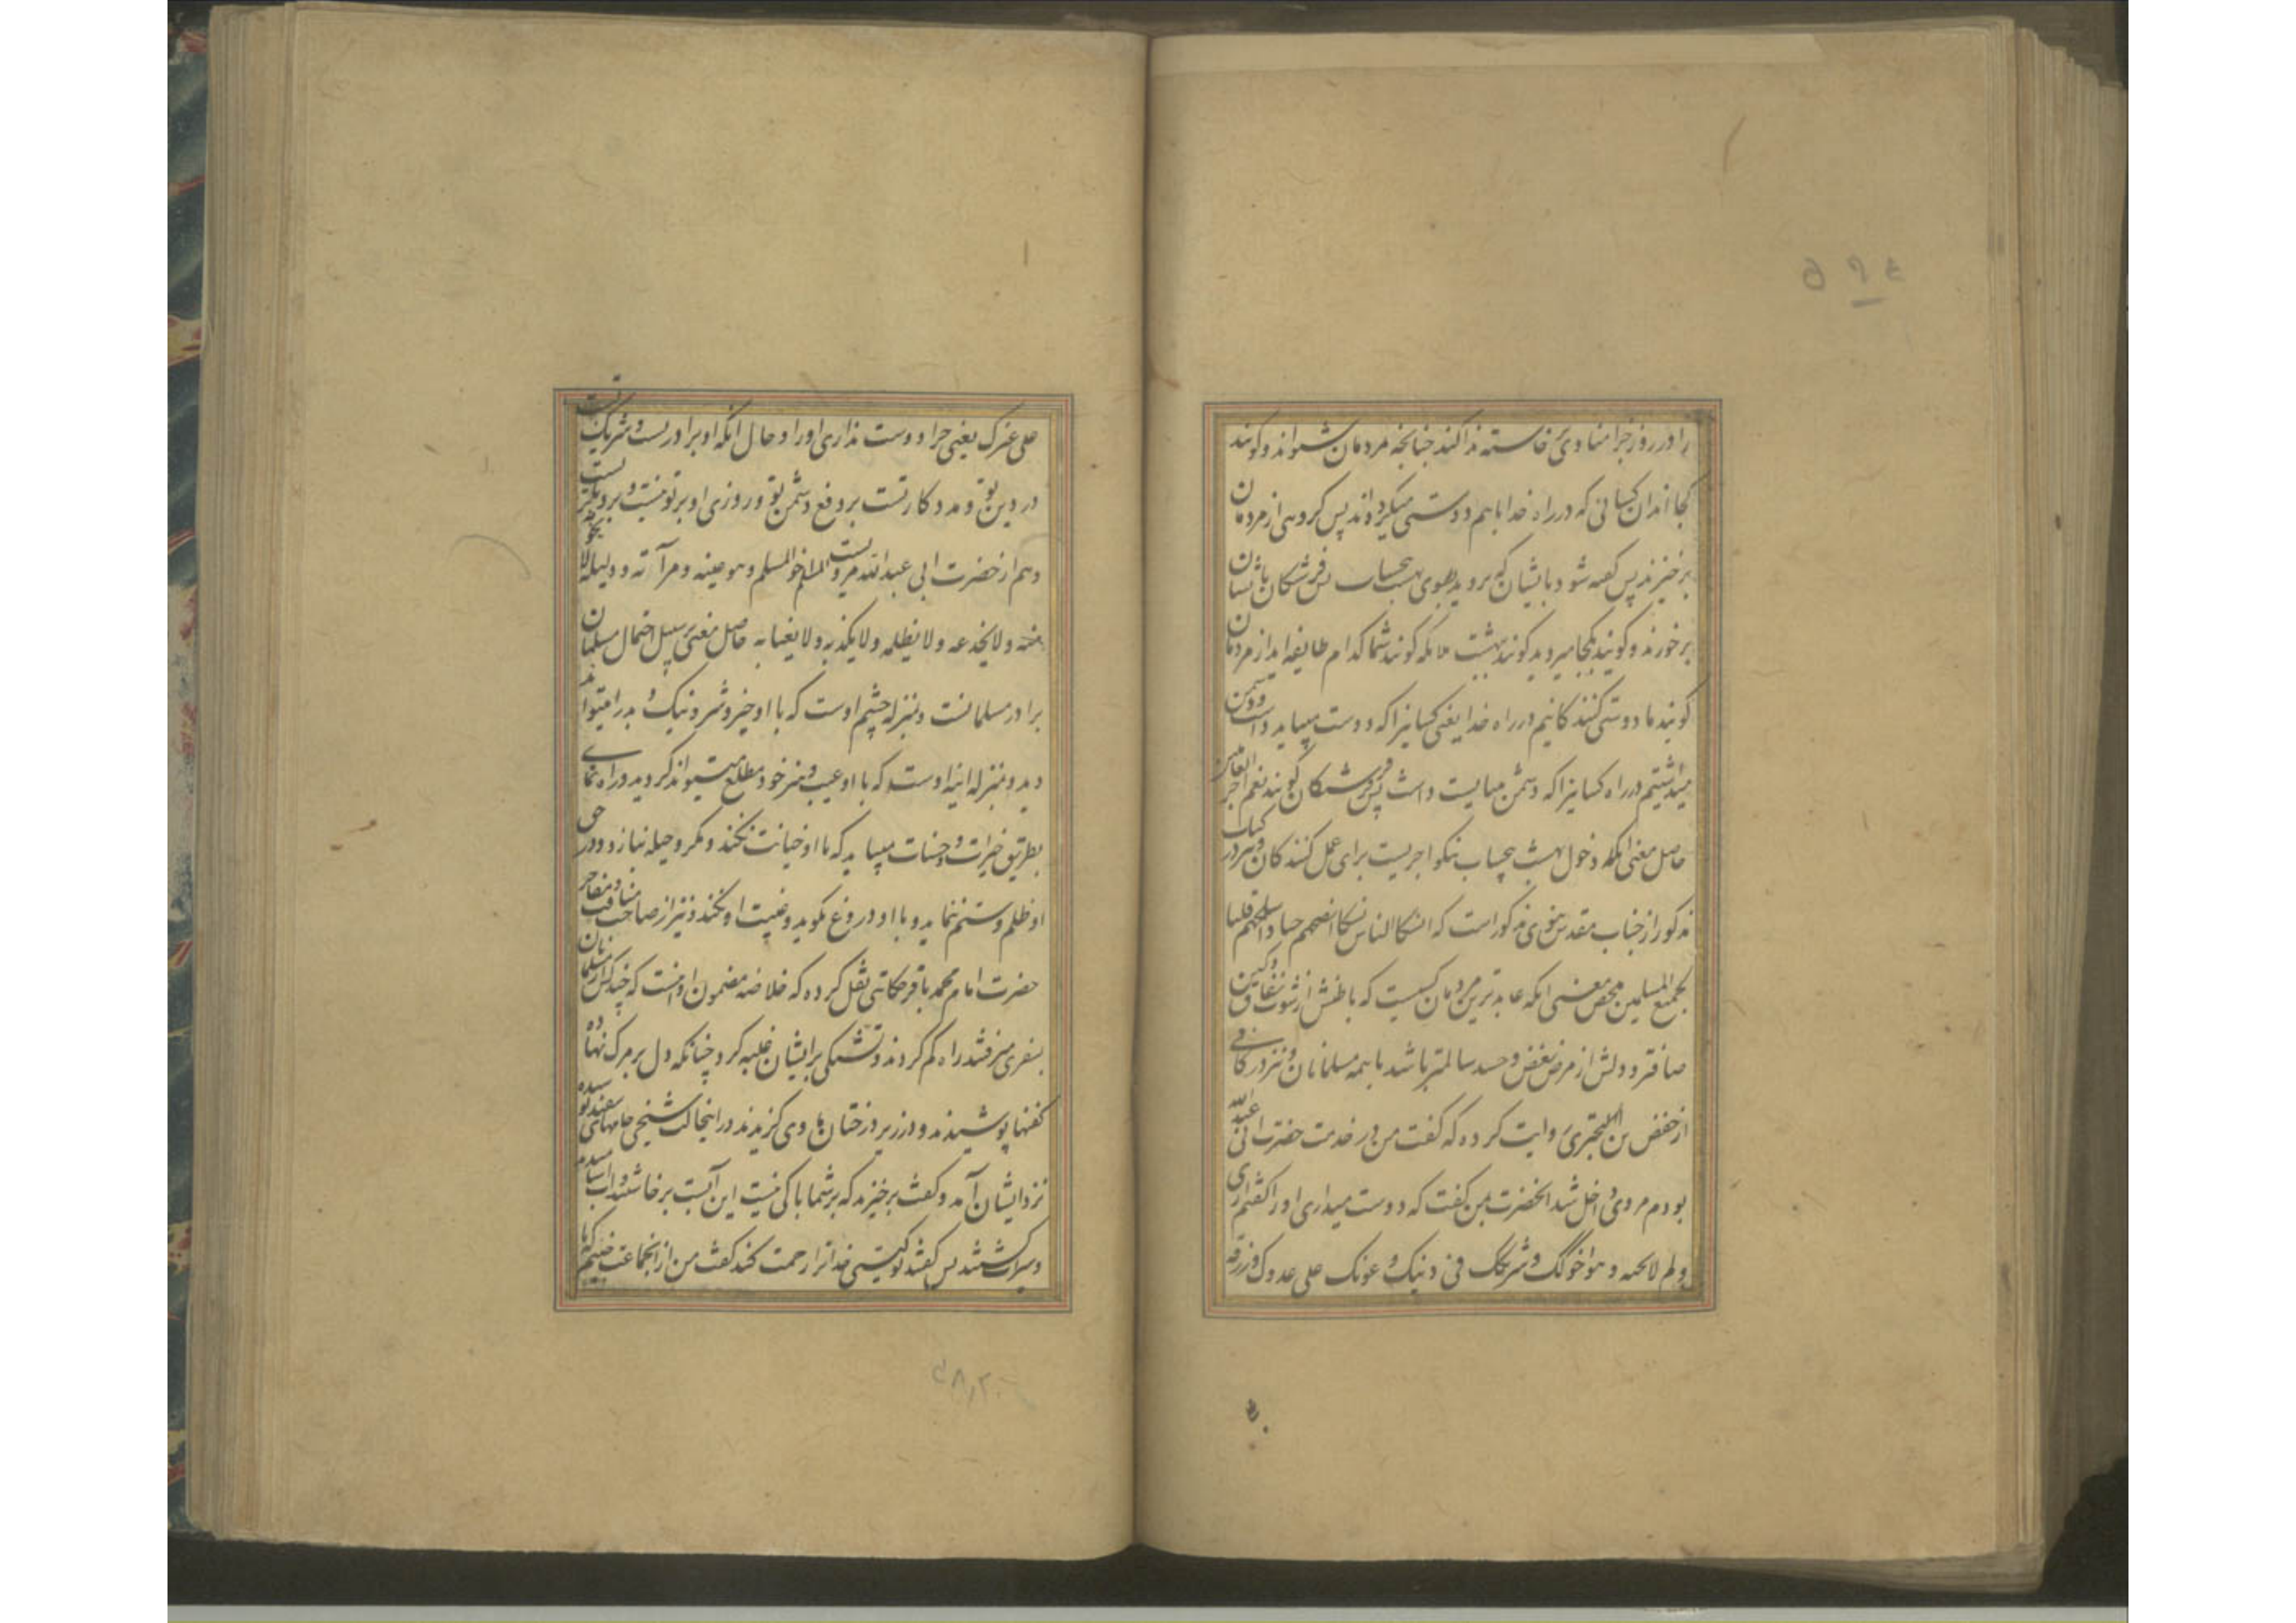 را در روز جزا منادی خاسته ندا کند چنانچه مردمان شنوند و کویند
کجا اند ان کسانی که در راه خدا باهم دوستی میکرده اند پس کروهی از مردمان
برخیزند پس کفته شود بایشان که بروید بسوی بهشت بیحساب پس فرشتکان بایشان
برخورند و کویند بکجا میروید کویند ببهشت ملائکه کویند شما کدام طایفه اید از مردمان
کویند ما دوستی کنندکانیم در راه خدا یعنی کسانیرا که دوست میباید داشت دوست
میداشتیم در راه کسانیرا که دشمن میبایست داشت پس فرشتکان کویند نعم اجر العاملین
حاصل معنی انکه دخول بهشت بیحساب نیکو اجریست برای عمل کنندکان و نیز در کتاب
مذکور از جناب مقدس نبوی مذکور است که انسک الناس نسکا انصحهم جیبا و اسلمهم قلبا
لجمیع المسلمین محص معنی انکه عابدترین مردمان کسیست که باطنش از شوب نفاق و کین
صافتر و دلش از مرض بغض و حسد سالمتر باشد با همه مسلمانان و نیز در کافی
از حفص بن البختری روایت کرده که کفت من در خدمت حضرت ابی عبدالله
بودم مردی داخل شد انحضرت بمن کفت که دوست میداری او را کفتم اری
ولم لا تحبه و هو اخوک و شریکک فی دینک و عونک علی عدوک و رزقه
علی غیرک یعنی چرا دوست نداری او را و حال انکه او برادر تست و شریک تست
در دین تو و مددکار تست بر دفع دشمن تو و روزی او بر تو نیست و بر دیکریست
و هم از حضرت ابی عبدالله مرویست المسلم اخو المسلم و هو عینه و مرآته و دلیله لا یخونه
و لا یخدعه و لا یظلمه و لا یکذبه و لا یغتابه حاصل معنی بر سبیل احتمال مسلمان
برادر مسلمانست و بمنزله چشم اوست که با او خیر و شر و نیک و بد را میتواند
دید و بمنزله اینه اوست که با او عیب و هنر خود مطلع میتواند کردید و راه نمای
بطریق خیرات و حسنات میباید که با او خیانت نکند و مکر و حیله نبازد و در حق
او ظلم و ستم ننماید و با او دروغ نکوید و غیبت او نکند و نیز از صاحب مناقب و مفاخر
حضرت امام محمد باقر حکایتی نقل کرده که خلاصه مضمون او اینست که چند کس از مسلمانان
بسفری میرفتند راه کم کردند و تشنکی بر ایشان غلبه کرد چنانکه دل بر مرک نهاده
کفنها پوشیدند و در زیر درختان ماوی کزیدند در اینحالت شیخی جامهای سفید پوشیده
نزد ایشان آمد و کفت برخیزید که بر شما باکی نیست این آبست برخاستند و اب اشامیده
و سیراب کشتند پس کفتند تو کیستی خدا ترا رحمت کند کفت من از انجماعت جنیم که با